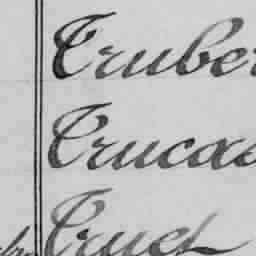 Truber
Trucas
Truch